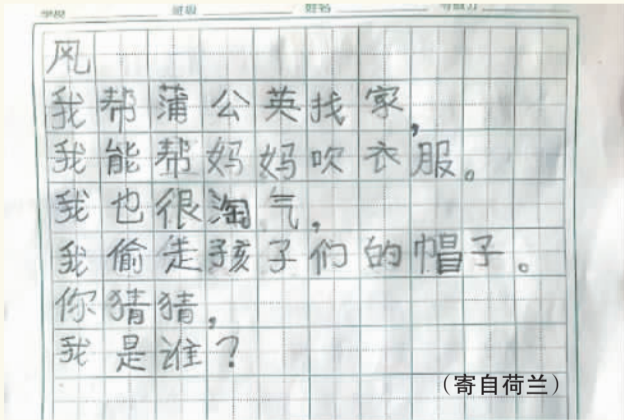 学校 班级 姓名 考试分
风
我帮蒲公英找家,
我能帮妈妈吹衣服。
我也很淘气,
我偷走孩子们的帽子。
你猜猜,
我是谁?
(寄自荷兰)